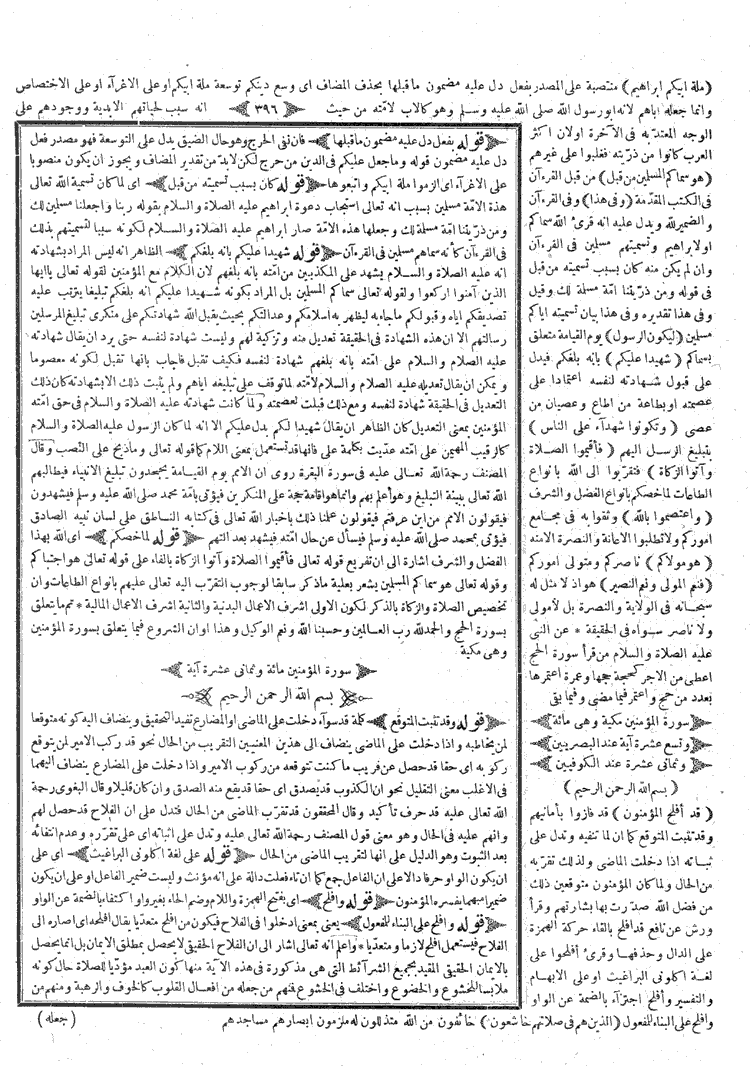 (ملة ابيكم ابراهيم) منتصبة على المصدر بفعل دل عليه مضمون ماقبلها بحذف المضاف اى وسع دينكم توسعة ملة ابيكم او على الاغرآء او على الاختصاص
وانما جعله اباهم لانه ابو رسول الله صلى الله عليه وسلم وهو كالاب لامّته من حيث ﴿ ٣٩٦ ﴾ انه سبب لحياتهم الابدية ووجودهم على
الوجه المعتدّ به فى الآخرة اولان اكثر
العرب كانوا من ذرّيته فغلبوا على غيرهم
(هو سماكم المسلين من قبل) من قبل القرءآن
فى الكتب المقدمة (وفى هذا) وفى القرءآن
والضمير لله ويدل عليه انه قرئ الله سماكم
اولابراهيم وتسميتهم مسلين فى القرءآن
وان لم يكن منه كان بسبب تسميته من قبل
فى قوله ومن ذرّيتنا امّة مسلة لك وقيل
وفى هذا تقديره وفى هذا بيان تسميته اياكم
مسلمين (ليكون الرسول) يوم القيامة متعلق
بسماكم (شهيدا عليكم) بانه بلغكم فيدل
على قبول شهادته لنفسه اعتمادا على
عصمته او بطاعة من اطاع وعصيان من
عصى (وتكونوا شهدآء على الناس)
بتبليغ الرسل اليهم (فأقيموا الصلاة
وآتوا الزكاة) فتقرّبوا الى الله بانواع
الطاعات لما خصكم بانواع الفضل والشرف
(واعتصموا بالله) وثقوا به فى مجامع
اموركم ولاتطلبوا الاعانة والنصرة الامنه
(هو مولاكم) ناصركم ومتولى اموركم
(فنعم المولى ونعم النصير) هو اذ لا مثل له
سبحانه فى الولاية والنصرة بل لامولى
ولا ناصر سواه فى الحقيقة * عن النبى
عليه الصلاة والسلام من قرأ سورة الحج
اعطى من الاجر كحجة حجها وعمرة اعتمرها
بعدد من حج واعتمر فيما مضى وفيما بقى
﴿سورة المؤمنين مكية وهى مائة﴾
﴿وتسع عشرة آية عند البصريين﴾
﴿وثمانى عشرة عند الكوفيين﴾
(بسم الله الرحمن الرحيم)
(قد أفلح المؤمنون) قد فازوا بأمانيهم
وقد تثبت المتوقع كما ان لما تنفيه وتدل على
ثباته اذا دخلت الماضى ولذلك تقرّبه
من الحال ولما كان المؤمنون متوقعين ذلك
من فضل الله صدّرت بها بشارتهم وقرأ
ورش عن نافع قد افلح بالقاء حركة الهمزة
على الدال وحذفها وقرئ أفلحوا على
لغة اكلونى البراغيث او على الابهام
والتفسير وأفلح اجتزآء بالضمة عن الواو
وافلح على البناء للمفعول (الذين هم فى صلاتهم خاشعون) خائفون من الله متذللون له ملزمون ابصارهم مساجدهم (جعله)
﴿قوله بفعل دل عليه مضمون ماقبلها﴾ فان نفى الحرج وهو حال الضيق يدل على التوسعة فهو مصدر فعل
دل عليه مضمون قوله وماجعل عليكم فى الدين من حرج لكن لابدّ من تقدير المضاف ويجوز ان يكون منصوبا
على الاغرآء اى الزموا ملة ابيكم واتبعوها ﴿قوله كان بسبب تسميته من قبل﴾ اى لما كان تسمية الله تعالى
هذه الامّة مسلين بسبب انه تعالى استجاب دعوة ابراهيم عليه الصلاة والسلام بقوله ربنا واجعلنا مسلين لك
ومن ذرّيتنا امّة مسلة لك وجعلها هذه الامّة صار ابراهيم عليه الصلاة والسلام لكونه سببا لتسميتهم بذلك
فى القرءآن كأنه سماهم مسلين فى القرءآن ﴿قوله شهيدا عليكم بانه بلغكم﴾ الظاهر انه ليس المراد بشهادته
انه عليه الصلاة والسلام يشهد على المكذبين من امّته بانه بلغهم لان الكلام مع المؤمنين لقوله تعالى ياايها
الذين آمنوا اركعوا ولقوله تعالى سماكم المسلين بل المراد بكونه شهيدا عليكم انه بلغكم تبليغا يترتب عليه
تصديقكم اياه وقبولكم ماجاء به ليظهر به اسلامكم وعدالتكم بحيث يقبل الله شهادتكم على منكرى تبليغ المرسلين
رسالتهم الا ان هذه الشهادة فى الحقيقة تعديل منه وتزكية لهم وليست شهادة لنفسه حتى يرد ان يقال شهادته
عليه الصلاة والسلام على امّته بانه بلغهم شهادة لنفسه فكيف تقبل فاجاب بانها تقبل لكونه معصوما
ويمكن ان يقال تعديله عليه الصلاة والسلام لامّته لما توقف على تبليغه اياهم ولم يثبت ذلك الا بشهادته كان ذلك
التعديل فى الحقيقة شهادة لنفسه ومع ذلك قبلت لعصمته ولما كانت شهادته عليه الصلاة والسلام فى حق امّته
المؤمنين بمعنى التعديل كان الظاهر ان يقال شهيدا لكم بدل عليكم الا انه لما كان الرسول عليه الصلاة والسلام
كالرقيب المهيمن على امّته عدّيت بكلمة على فانها قد تستعمل بمعنى اللام كما فى قوله تعالى وما ذبح على النصب وقال
المصنف رحمة الله تعالى عليه فى سورة البقرة روى ان الامم يوم القيامة يجحدون تبليغ الانبياء فيطالبهم
الله تعالى ببينة التبليغ وهو أعلم بهم وانما هو اقامة حجة على المنكرين فيؤتى بامّة محمد صلى الله عليه وسلم فيشهدون
فيقولون الامم من اين عرفتم فيقولون علمنا ذلك باخبار الله تعالى فى كتابه الناطق على لسان نبيه الصادق
فيؤتى بمحمد صلى الله عليه وسلم فيسأل عن حال امّته فيشهد بعد التهم ﴿قوله لما خصكم﴾ اى الله بهذا
الفضل والشرف اشارة الى ان تفريع قوله تعالى فأقيموا الصلاة وآتوا الزكاة بالفاء على قوله تعالى هو اجتباكم
وقوله تعالى هو سماكم المسلين يشعر بعلية ماذكر سابقا لوجوب التقرّب اليه تعالى عليهم بانواع الطاعات وان
تخصيص الصلاة والزكاة بالذكر لكون الاولى اشرف الاعمال البدنية والثانية اشرف الاعمال المالية * تم ما يتعلق
بسورة الحج والحمد لله رب العالمين وحسبنا الله ونعم الوكيل وهذا اوان الشروع فيما يتعلق بسورة المؤمنين
وهى مكية
﴿سورة المؤمنين مائة وثمانى عشرة آية﴾
﴿بسم الله الرحمن الرحيم﴾
﴿قوله وقد تثبت المتوقع﴾ كلمة قد سوآء دخلت على الماضى او المضارع تفيد التحقيق وينضاف اليه كونه متوقعا
لمن يخاطبه واذا دخلت على الماضى ينضاف الى هذين المعنيين التقريب من الحال نحو قد ركب الامير لمن يتوقع
ركوبه اى حقا قد حصل عن قريب ما كنت تتوقعه من ركوب الامير واذا دخلت على المضارع ينضاف اليهما
فى الاغلب معنى التقليل نحو ان الكذوب قد يصدق اى حقا قد يقع منه الصدق وان كان قليلا وقال البغوى رحمة
الله تعالى عليه قد حرف تأكيد وقال المحققون قد تقرّب الماضى من الحال فتدل على ان الفلاح قد حصل لهم
وانهم عليه فى الحال وهو معنى قول المصنف رحمة الله تعالى عليه وتدل على اثباته اى على تقرّره وعدم انتفائه
بعد الثبوت وهو الدليل على انها لتقريب الماضى من الحال ﴿قوله على لغة اكلونى البراغيث﴾ اى على
ان يكون الواو حرفا دالا على ان الفاعل جمع كما ان تاء فعلت دالة على انه مؤنث وليست ضمير الفاعل او على ان يكون
ضميرا مبهما يفسره المؤمنون ﴿قوله وافلح﴾ اى بفتح الهمزة واللام وضم الحاء بغير واو اكتفاء بالضمة عن الواو
﴿قوله وافلح على البناء للمفعول﴾ يعنى بمعنى ادخلوا فى الفلاح فيكون من افلح متعدّيا يقال افلحه اى اصاره الى
الفلاح فيستعمل افلح لازما ومتعدّيا * واعلم انه تعالى اشار الى ان الفلاح الحقيقى لا يحصل بمطلق الايمان بل انما يحصل
بالايمان الحقيقى المقيد بجميع الشرآئط التى هى مذكورة فى هذه الآية منها كون العبد مؤدّيا للصلاة حال كونه
ملابسا للخشوع والخضوع واختلف فى الخشوع فمنهم من جعله من افعال القلوب كالخوف والرهبة ومنهم من